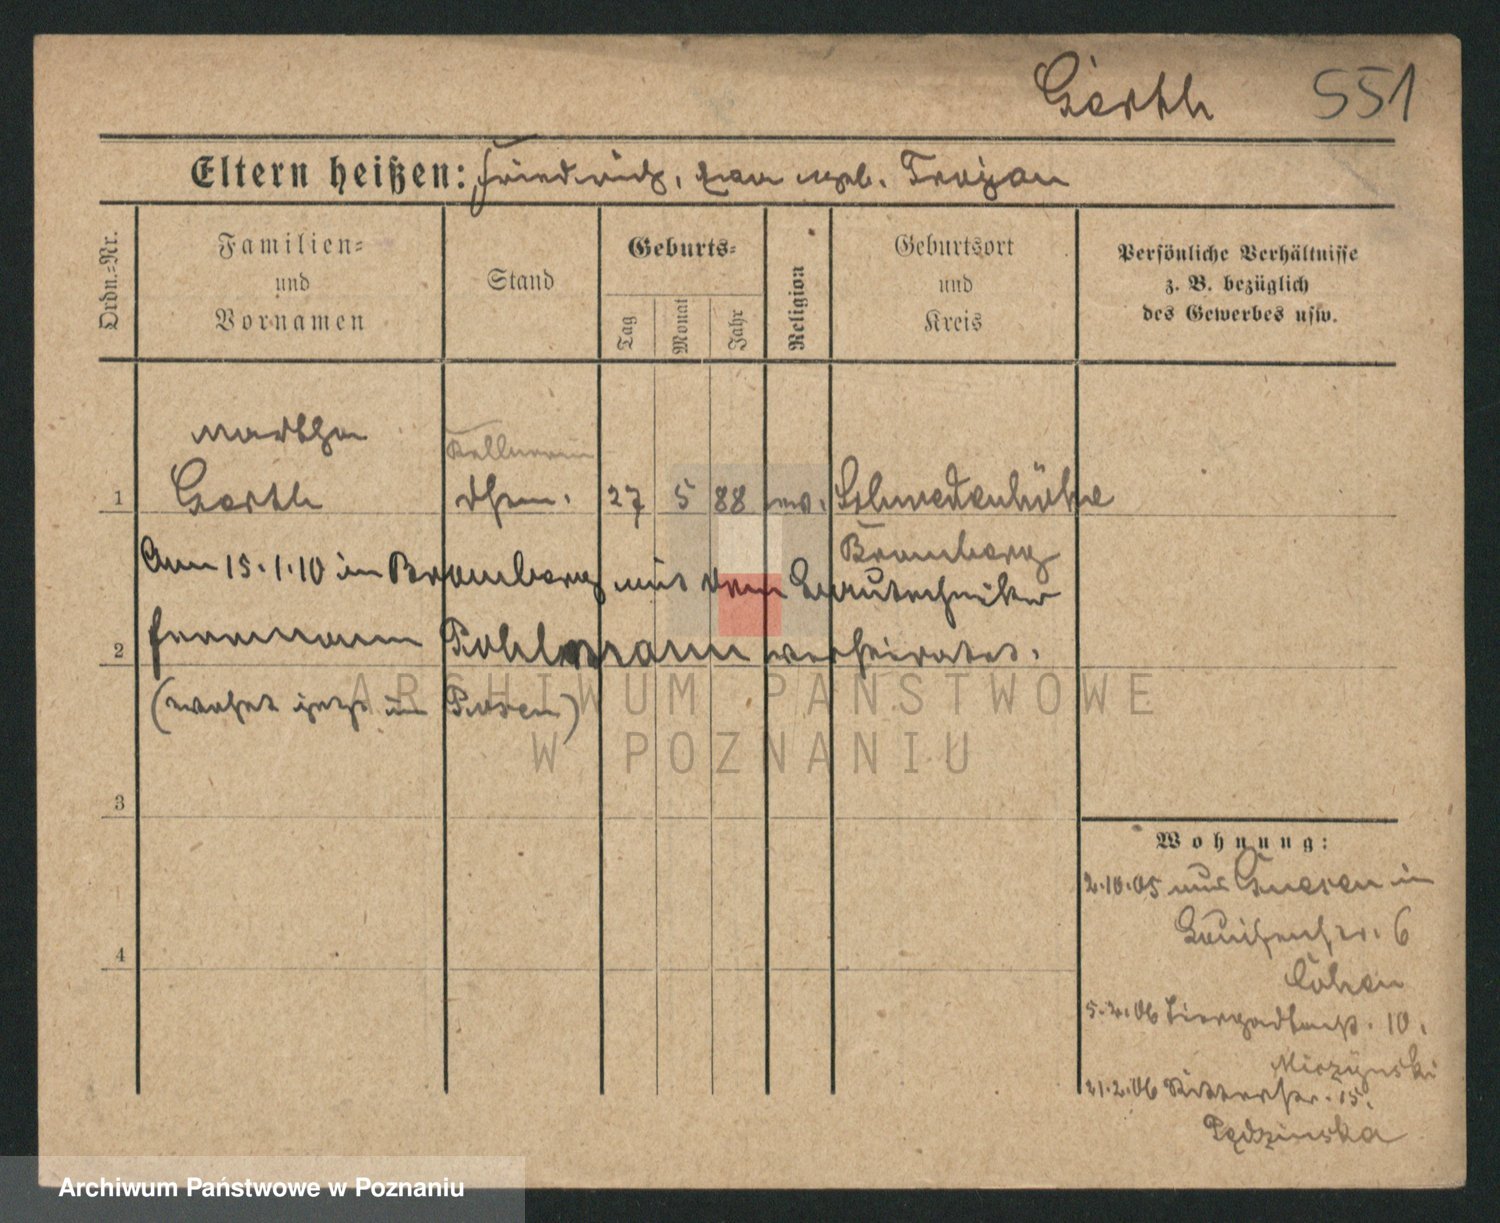 Gerth 551
Eltern heißen: Friedrich, Frau geb. Trojan
Ordn.=Nr.
Familien=
und
Vornamen
Stand
Geburts=
Tag
Monat
Jahr
Religion
Geburtsort
und
Kreis
Persönliche Verhältnisse
z. B. bezüglich
des Gewerbes usw.
Martha
Kellnerin
1 Gerth 27 5 88 ev. Schwedenhöhe
Bromberg
Am 15.1.10 in Bromberg mit dem Bautechniker
2 Hermann Pohlmann verheiratet.
(wohnt jetzt in Posen)
ARCHIWUM PAŃSTWOWE
W POZNANIU
3
4
Wohnung:
2.10.05 aus Gnesen in
Louisenstr. 6
Cohen
5.2.06 10.
Miczynski
21.2.06 Ritterstr. 15.
Pędzinska
Archiwum Państwowe w Poznaniu